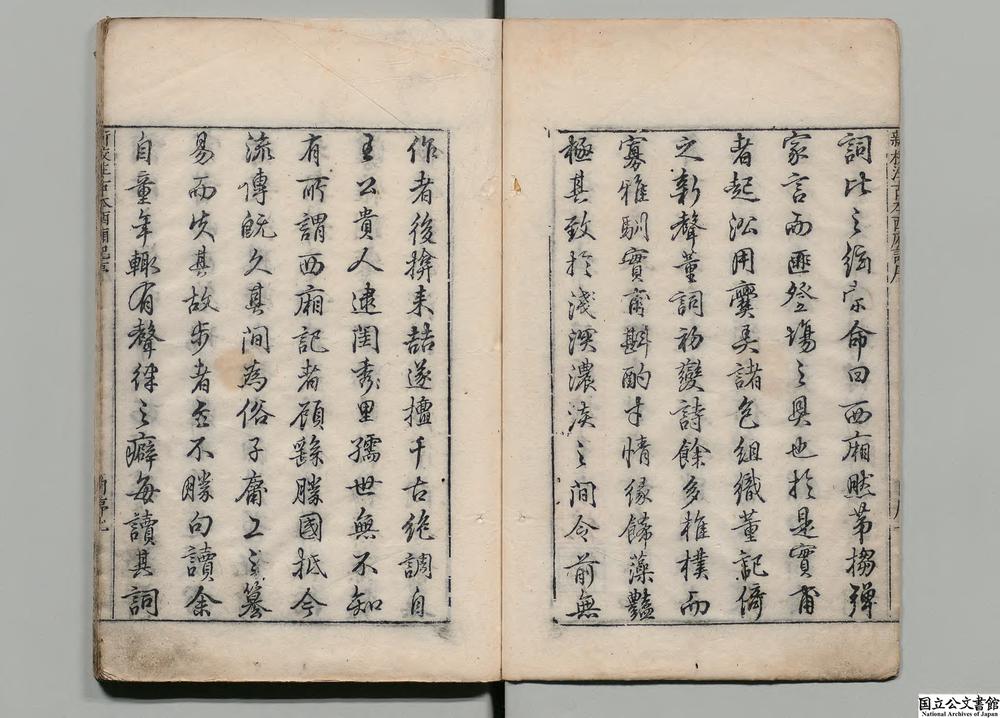 詞比之絃索命曰西廂然第搊彈
家言而匪登場之具也於是實甫
者起沿用爨弄諸色組織董記倚
之新聲董詞初變詩餘多椎樸而
寡雅馴實甫斟酌才情緣飾藻豔
極其致於淺深濃淡之間令前無
作者後掩來喆遂擅千古絕調自
王公貴人逮閨秀里孺世無不知
有所謂西廂記者顧繇勝國抵今
流傳既久其間為俗子庸工之篡
易而失其故步者至不勝句讀余
自童年輒有聲律之癖每讀其詞
新校注古本西廂記序
新校注古本西廂記序
国立公文書館
National Archives of Japan